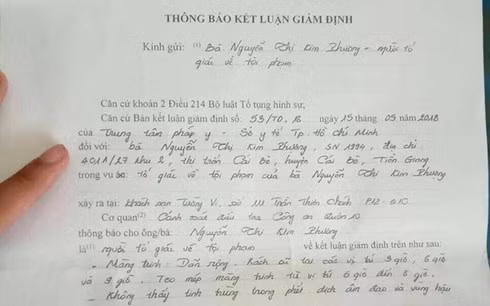 THÔNG BÁO KẾT LUẬN GIÁM ĐỊNH
Kính gửi: (1) Bà Nguyễn Thị Kim Phương - người tố
giác về tội phạm
Căn cứ khoản 2 Điều 214 Bộ luật Tố tụng hình sự,
Căn cứ Bản kết luận giám định số: 53/TD.18 ngày 15 tháng 05 năm 2018
của Trung tâm pháp y - Sở y tế Tp. Hồ Chí Minh
đối với: bà Nguyễn Thị Kim Phương, SN 1994, địa chỉ
401A/27 khu 2, thị trấn Cái Bè, huyện Cái Bè, Tiền Giang
trong vụ án: tố giác về tội phạm của bà Nguyễn Thị Kim Phương
xảy ra tại: khách sạn Tường Vi, số Trần Thiện Chánh P12-Q10
Cơ quan(2) Cảnh sát điều tra Công an Quận 10
thông báo cho ông/bà: Nguyễn Thị Kim Phương
là(1) người tố giác về tội phạm về kết luận giám định trên như sau:
- Màng trinh: Dãn rộng. Rách cũ tại các vị trí 3 giờ, 6 giờ
và 9 giờ. Teo mép màng trinh từ vị trí 6 giờ đến giờ.
- Không thấy tinh trùng trong phết dịch âm đạo và vùng hậu